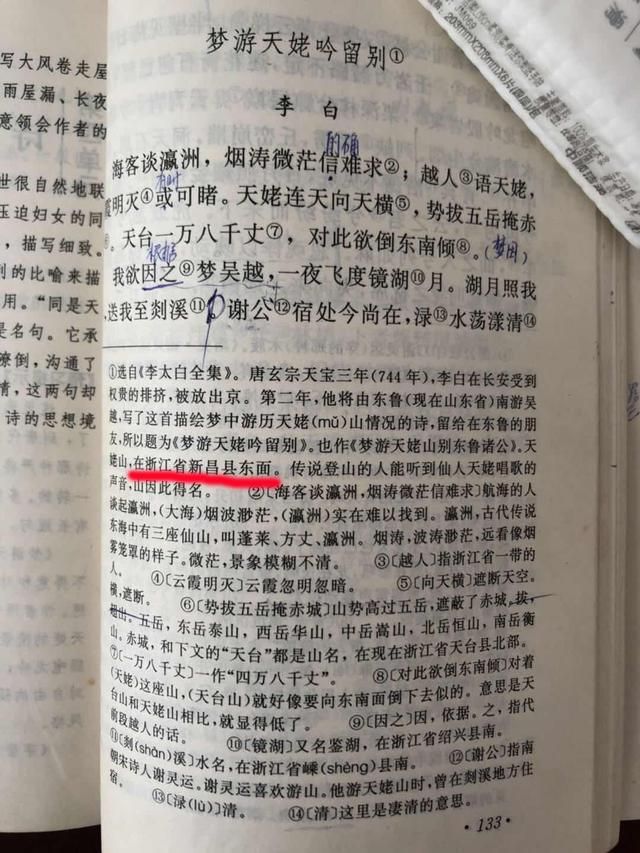 梦游天姥吟留别①
李白
的确
海客谈瀛洲，烟涛微茫信难求②；越人③语天姥，
霞明灭④或可睹。天姥连天向天横⑤，势拔五岳掩赤
。天台一万八千丈⑦，对此欲倒东南倾⑧。(梦因)
根据
我欲因之⑨梦吴越，一夜飞度镜湖⑩月。湖月照我
送我至剡溪⑪。谢公⑫宿处今尚在，渌⑬水荡漾清⑭
①选自《李太白全集》。唐玄宗天宝三年(744年)，李白在长安受到
权贵的排挤，被放出京。第二年，他将由东鲁(现在山东省)南游吴
越，写了这首描绘梦中游历天姥(mǔ)山情况的诗，留给在东鲁的朋
友，所以题为《梦游天姥吟留别》。也作《梦游天姥山别东鲁诸公》。天
姥山，在浙江省新昌县东面。传说登山的人能听到仙人天姥唱歌的
声音，山因此得名。 ②〔海客谈瀛洲，烟涛微茫信难求〕航海的人
谈起瀛洲，(大海)烟波渺茫，(瀛洲)实在难以找到。瀛洲，古代传说
东海中有三座仙山，叫蓬莱、方丈、瀛洲。烟涛，波涛渺茫，远看像烟
雾笼罩的样子。微茫，景象模糊不清。 ③〔越人〕指浙江省一带的
人。 ④〔云霞明灭〕云霞忽明忽暗。 ⑤〔向天横〕遮断天空。
横，遮断。 ⑥〔势拔五岳掩赤城〕山势高过五岳，遮蔽了赤城，拔，
超出。五岳，东岳泰山，西岳华山，中岳嵩山，北岳恒山，南岳衡
山。赤城，和下文的“天台”都是山名，在现在浙江省天台县北部。
⑦〔一万八千丈〕一作“四万八千丈”。 ⑧〔对此欲倒东南倾〕对着
(天姥)这座山，(天台山)就好像要向东南面倒下去似的。意思是天
台山和天姥山相比，就显得低了。 ⑨〔因之〕因，依据。之，指代
前段越人的话。 ⑩〔镜湖〕又名鉴湖，在浙江省绍兴县南。
⑪〔剡(shàn)溪〕水名，在浙江省嵊(shèng)县南。 ⑫〔谢公〕指南
朝宋诗人谢灵运。谢灵运喜欢游山。他游天姥山时，曾在剡溪地方住
宿。 ⑬〔渌(lù)〕清。 ⑭〔清〕这里是凄清的意思。
·133·
写大风卷走屋
雨屋漏、长夜
意领会作者的
世很自然地联
压迫妇女的同
，描写细致。
列的比喻来描
用。“同是天
是名句。它承
潦倒，沟通了
情，这两句却
诗的思想境